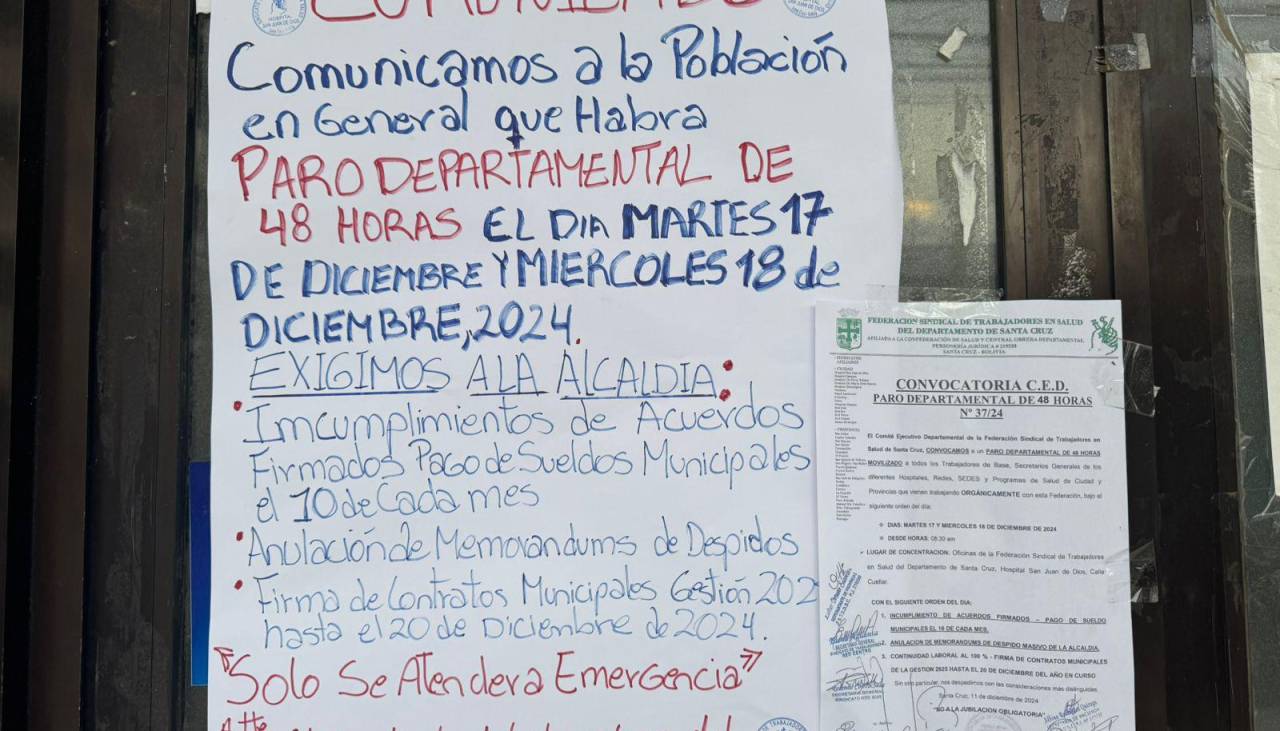 COMUNICADO
Comunicamos a la Población
en General que Habra
PARO DEPARTAMENTAL DE
48 HORAS EL DIA MARTES 17
DE DICIEMBRE Y MIERCOLES 18 de
DICIEMBRE, 2024.
EXIGIMOS A LA ALCALDIA:
• Imcumplimientos de Acuerdos
Firmados Pago de Sueldos Municipales
el 10 de Cada mes
• Anulación de Memorandums de Despidos
• Firma de Contratos Municipales Gestión 202
hasta el 20 de Diciembre de 2024.
"Solo Se Atendera Emergencia"
Atte
FEDERACION SINDICAL DE TRABAJADORES EN SALUD
DEL DEPARTAMENTO DE SANTA CRUZ
AFILIADO A LA CONFEDERACION DE SALUD Y CENTRAL OBRERA DEPARTAMENTAL
SANTA CRUZ - BOLIVIA
CONVOCATORIA C.E.D.
PARO DEPARTAMENTAL DE 48 HORAS
N° 37/24
El Comité Ejecutivo Departamental de la Federación Sindical de Trabajadores en
Salud de Santa Cruz, CONVOCAMOS a un PARO DEPARTAMENTAL DE 48 HORAS
MOVILIZADO a todos los Trabajadores de Base, Secretarios Generales de los
diferentes Hospitales, Redes, SEDES y Programas de Salud de Ciudad y
Provincias que vienen trabajando ORGÁNICAMENTE con esta Federación, bajo el
siguiente orden del día:
DIAS: MARTES 17 Y MIERCOLES 18 DE DICIEMBRE DE 2024
DESDE HORAS: 08:30 am
LUGAR DE CONCENTRACION: Oficinas de la Federación Sindical de Trabajadores
en Salud del Departamento de Santa Cruz, Hospital San Juan de Dios, Calle
Cuellar.
CON EL SIGUIENTE ORDEN DEL DIA:
1. INCUMPLIMIENTO DE ACUERDOS FIRMADOS – PAGO DE SUELDO
MUNICIPALES EL 10 DE CADA MES.
2. ANULACION DE MEMORANDUMS DE DESPIDO MASIVO DE LA ALCALDIA.
3. CONTINUIDAD LABORAL AL 100 % - FIRMA DE CONTRATOS MUNICIPALES
DE LA GESTION 2025 HASTA EL 20 DE DICIEMBRE DEL AÑO EN CURSO
Sin otro particular, nos despedimos con las consideraciones más distinguidas.
Santa Cruz, 11 de diciembre de 2024
"NO A LA JUBILACION OBLIGATORIA"